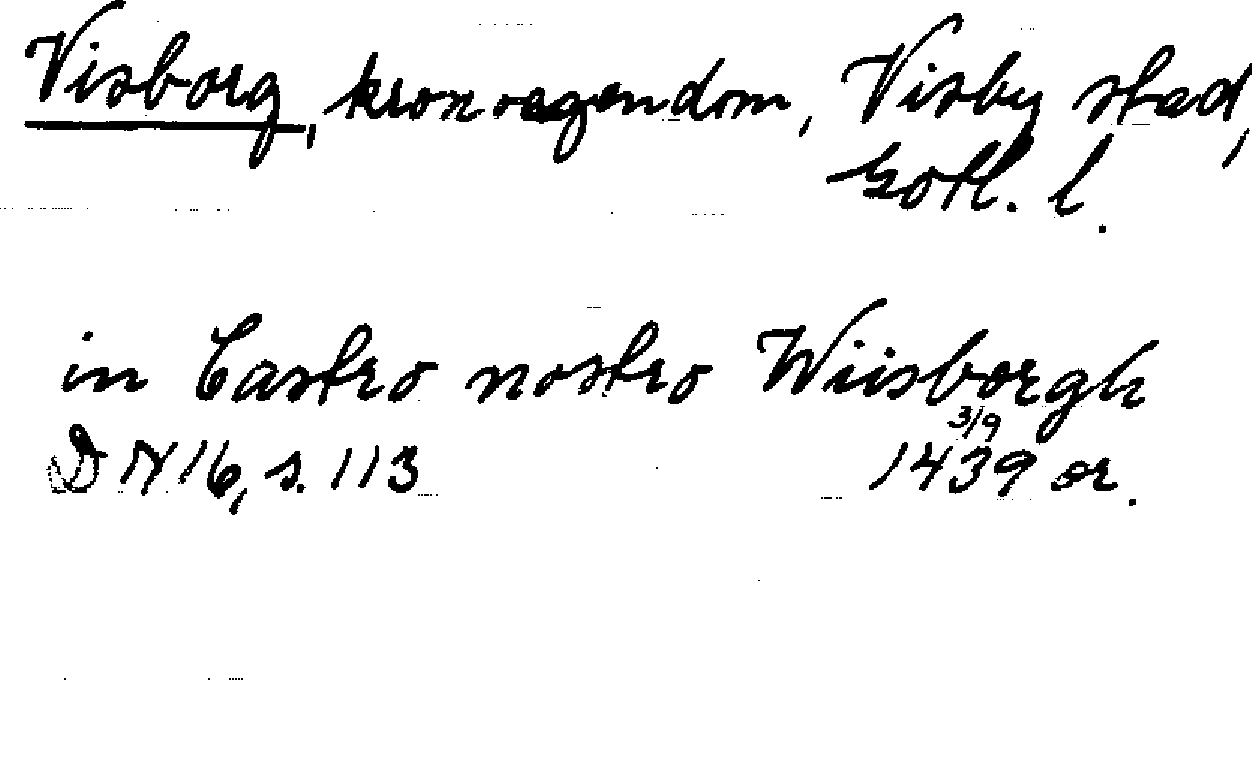 Visborg, kronoegendom, Visby stad,
Gotl. l.
in Castro nostro Wiisborgh
3/9
DN 16, s. 113 1439 or.